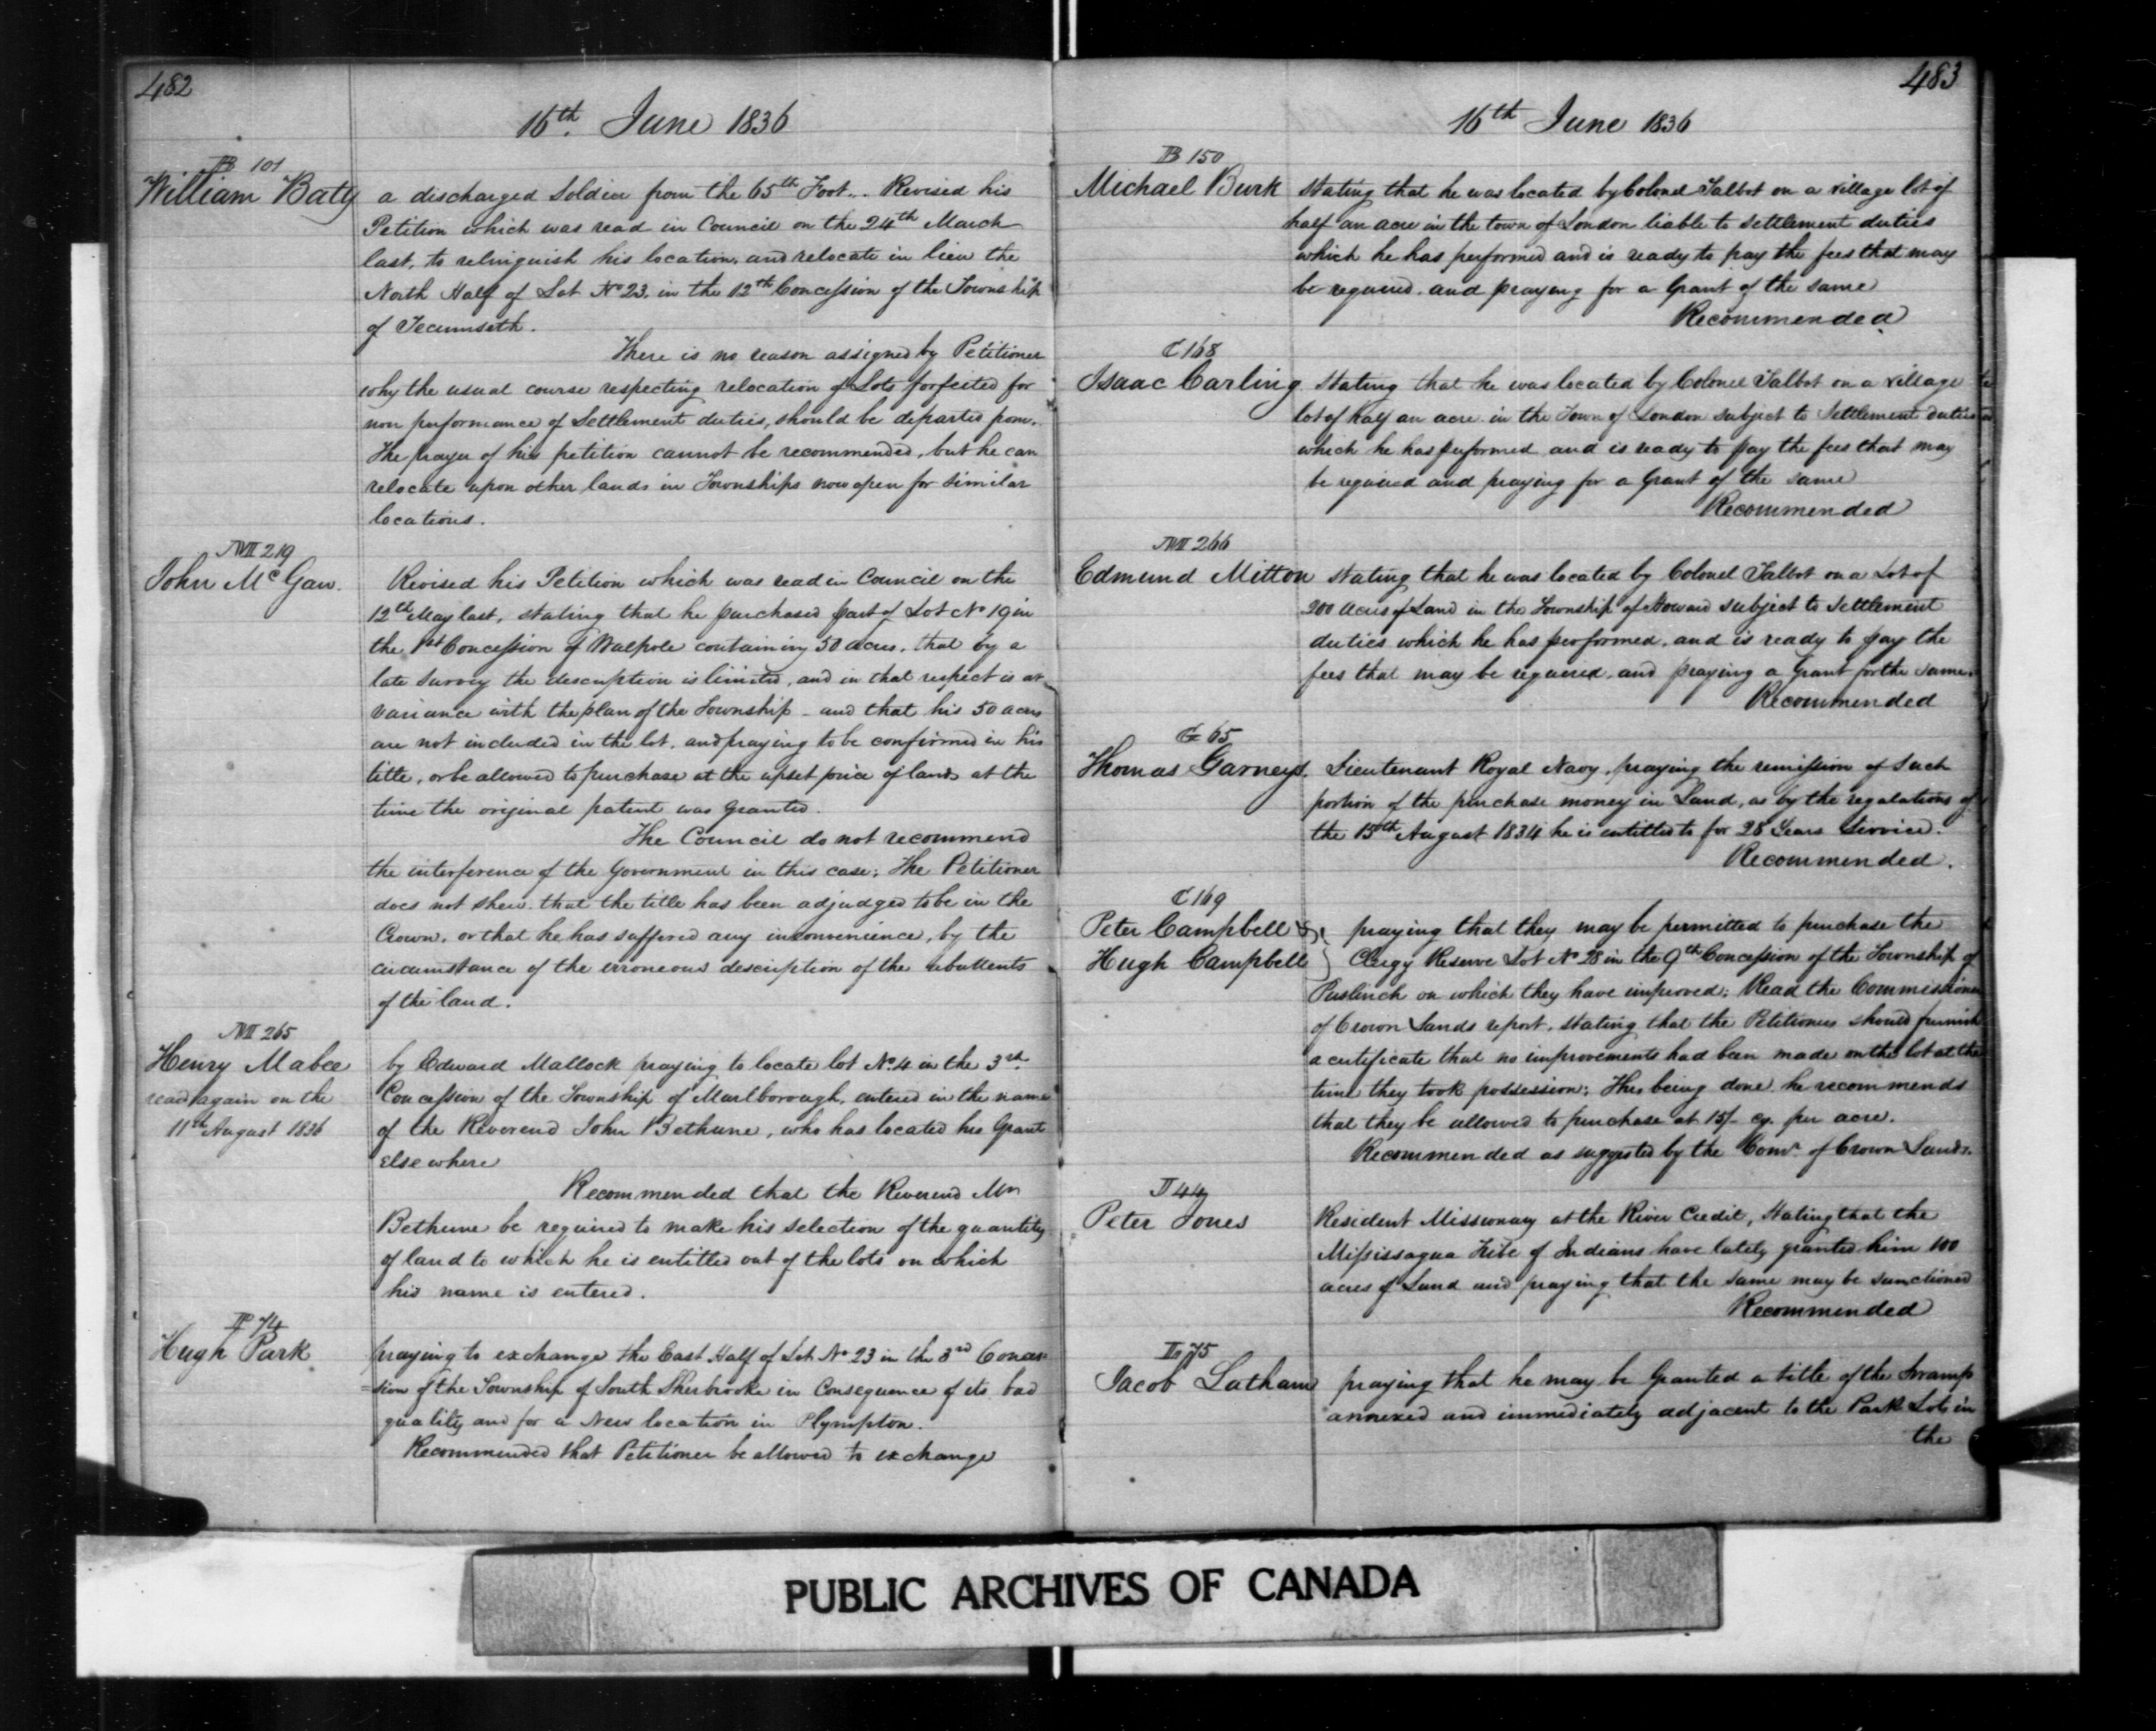 482
16th. June 1836
B 101
William Baty
a discharged Soldier from the 65th Foot.. Revised his
Petition which was read in Council on the 24th March
last, to relinquish his location, and relocate in lieu the
North Half of Lot No 23. in the 12th Concession of the Township
of Tecumseth.
There is no reason assigned by Petitioner
why the usual course respecting relocation of Lots forfeited for
non performance of Settlement duties, should be departed from.
The prayer of his petition cannot be recommended, but he can
relocate upon other lands in Townships now open for similar
locations.
M 219
John Mc Gaw.
Revised his Petition which was read in Council on the
12th May last, stating that he purchased part of Lot No 19 in
the 1st Concession of Walpole containing 50 acres, that by a
late Survey the description is limited, and in that respect is at
variance with the plan of the Township - and that his 50 acres
are not included in the lot, and praying to be confirmed in his
title, or be allowed to purchase at the upset price of lands at the
time the original patent was Granted.
The Council do not recommend
the interference of the Government in this case; The Petitioner
does not shew that the title has been adjudged to be in the
Crown, or that he has suffered any inconvenience, by the
circumstance of the erroneous description of the abuttents
of the land.
M 265
Henry Mabee
read again on the
11th August 1836
by Edward Mallock praying to locate lot No. 4 in the 3rd.
Concession of the Township of Marlborough, entered in the name
of the Reverend John Bethune, who has located his Grant
elsewhere
Recommended that the Reverend Mr
Bethune be required to make his selection of the quantity
of land to which he is entitled out of the lots on which
his name is entered.
P 74
Hugh Park
praying to exchange the East Half of Lot No 23 in the 3rd Conces-
=sion of the Township of South Sherbrooke in Consequence of its bad
quality and for a New location in Plympton.
Recommended that Petitioner be allowed to exchange
483
16th June 1836
B 150
Michael Burk
stating that he was located by Colonel Talbot on a village lot of
half an acre in the town of London liable to settlement duties
which he has performed and is ready to pay the fees that may
be required. and praying for a Grant of the same
Recommended
C 168
Isaac Carling
stating that he was located by Colonel Talbot on a village
lot of half an acre in the Town of London subject to Settlement duties
which he has performed and is ready to pay the fees that may
be required and praying for a Grant of the same
Recommended
M 266
Edmund Mitton
stating that he was located by Colonel Talbot on a Lot of
200 acres of Land in the Township of Howard subject to Settlement
duties which he has performed, and is ready to pay the
fees that may be required, and praying a Grant for the same.
Recommended
G 65
Thomas Garneys.
Lieutenant Royal Navy, praying the remission of Such
portion of the purchase money in Land, as by the regulations of
the 15th August 1834 he is entitled to for 28 Years Service.
Recommended.
C 169
Peter Campbell &
Hugh Campbell
praying that they may be permitted to purchase the
Clergy Reserve Lot No 28 in the 9th Concession of the Township of
Puslinch on which they have improved; Read the Commissioner
of Crown Lands report, stating that the Petitioners should furnish
a certificate that no improvements had been made on the lot at the
time they took possession; This being done he recommends
that they be allowed to purchase at 15/- cy. per acre.
Recommended as suggested by the Comr. of Crown Lands.
J 44
Peter Jones
Resident Missionary at the River Credit, Stating that the
Mississagua Tribe of Indians have lately granted him 100
acres of Land and praying that the same may be sanctioned
Recommended
L 75
Jacob Latham
praying that he may be Granted a title of the Swamp
annexed and immediately adjacent to the Park Lots in
the
PUBLIC ARCHIVES OF CANADA